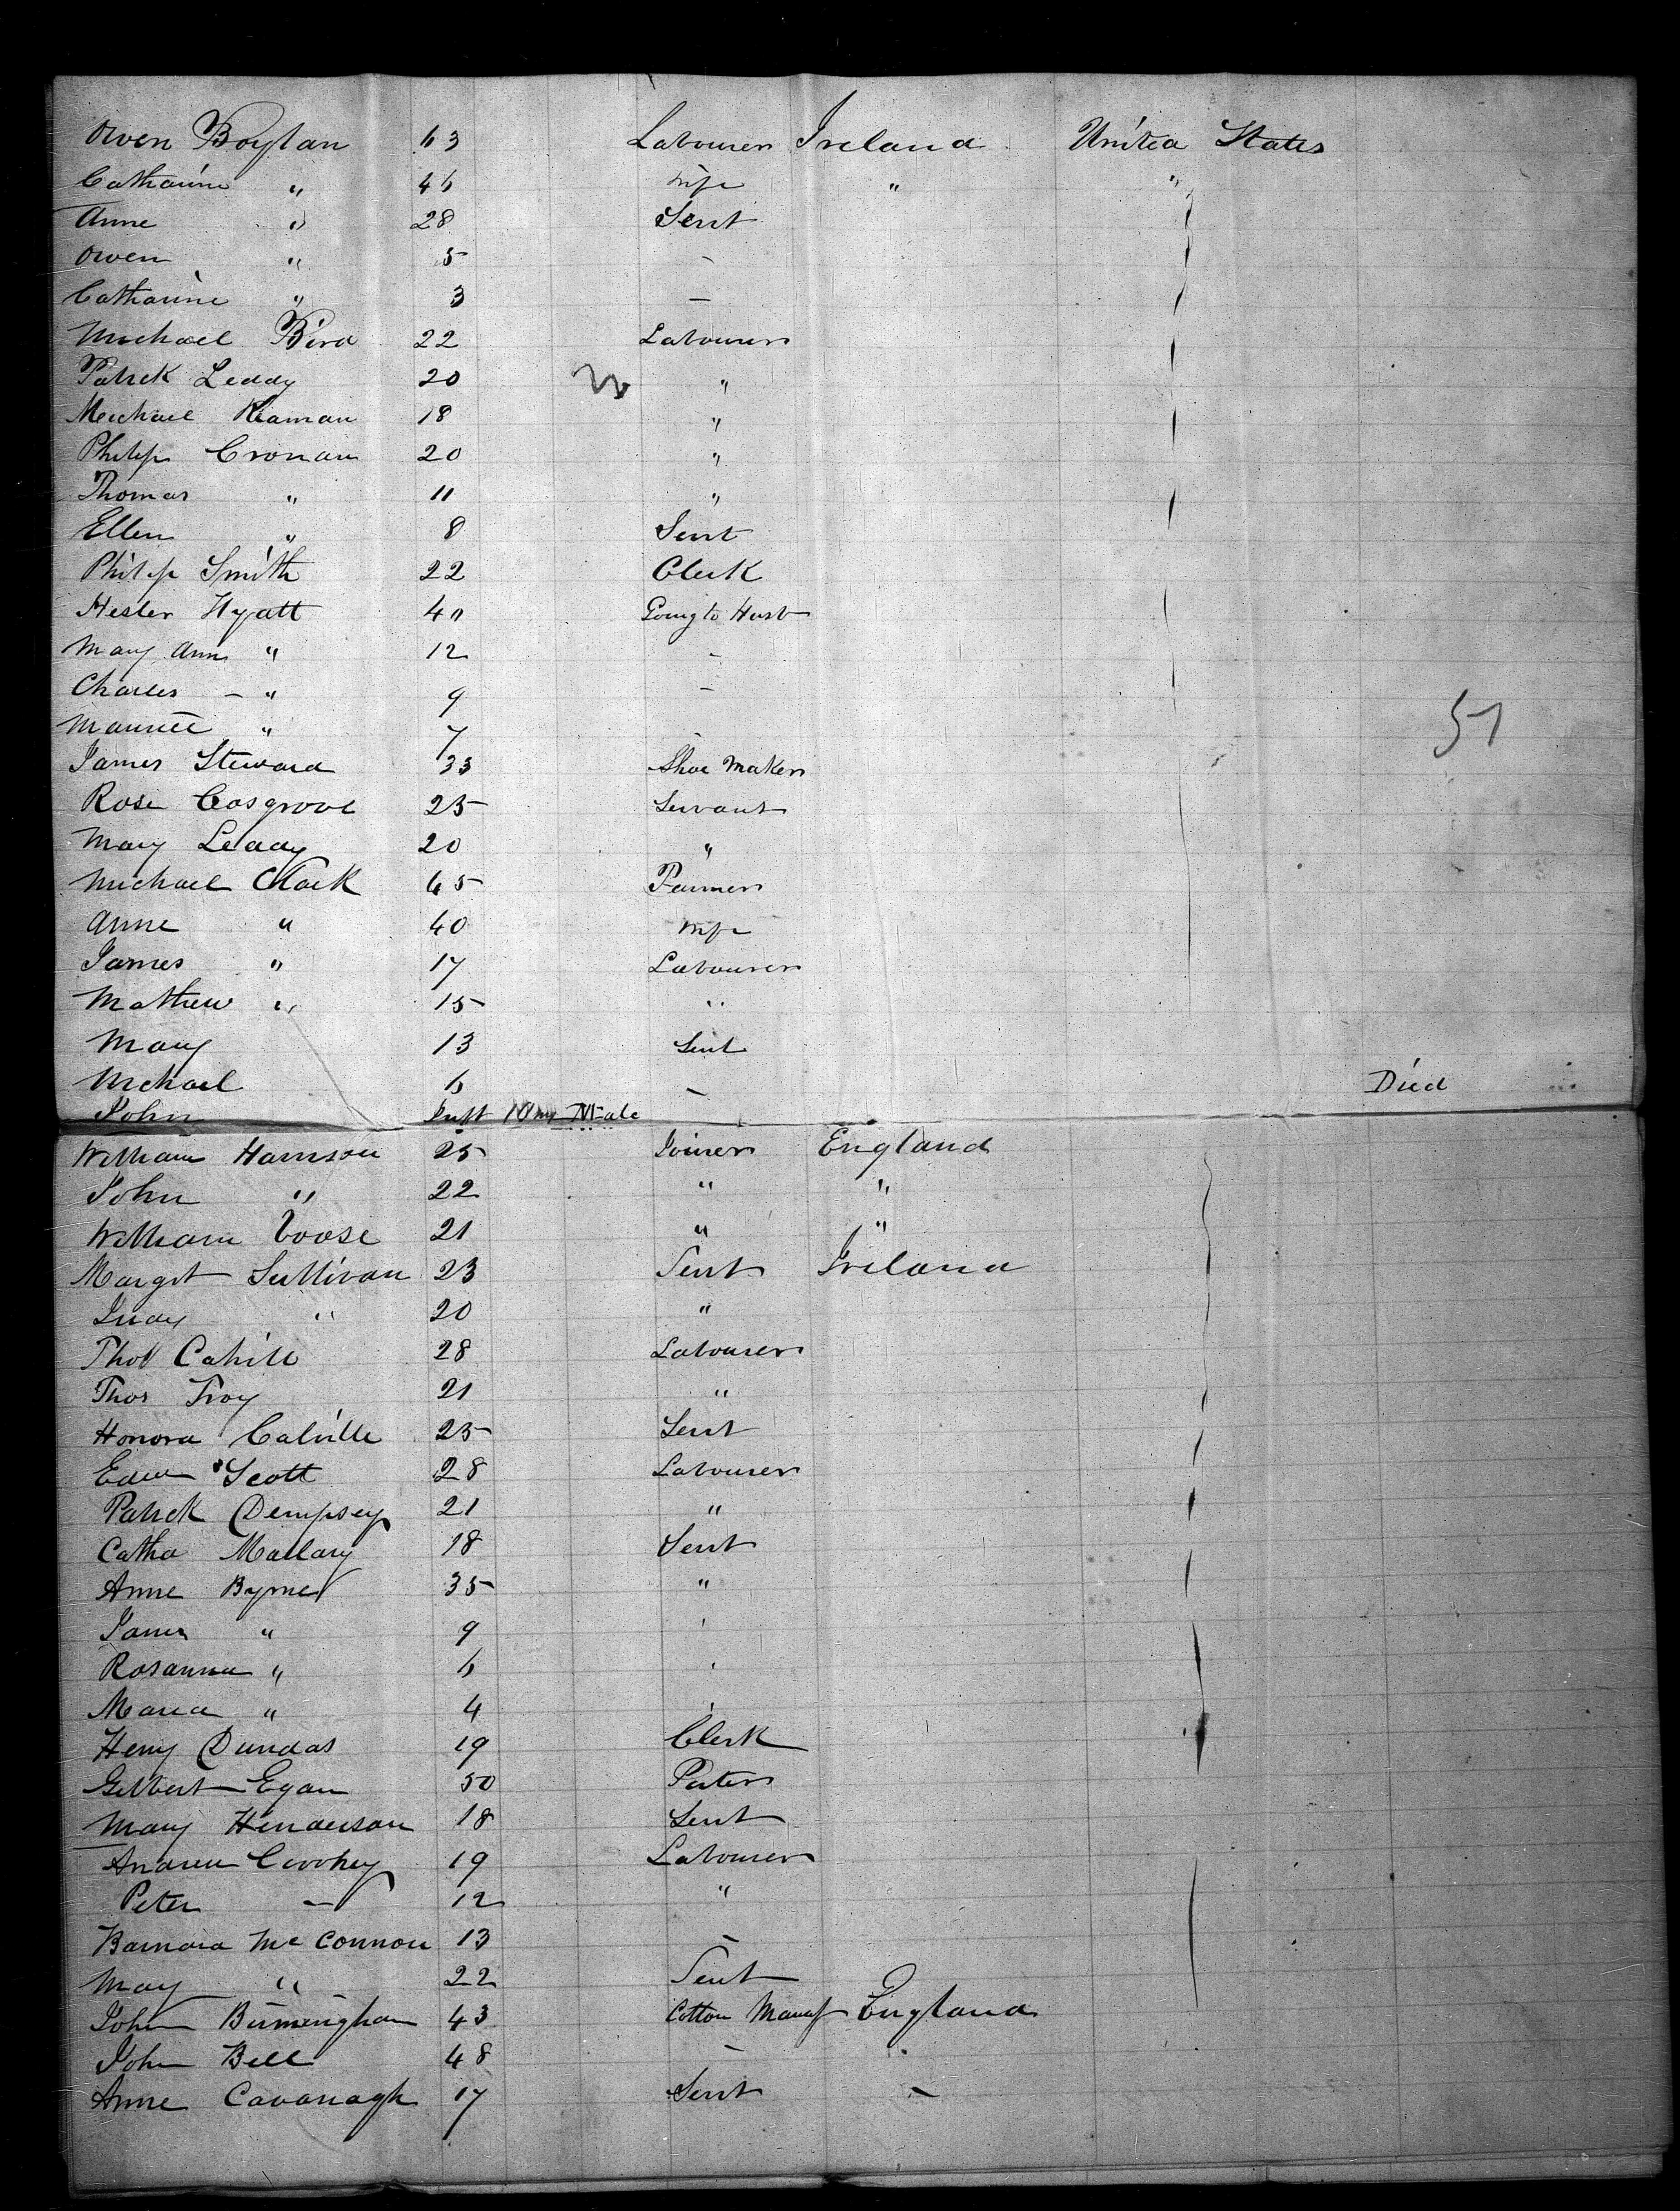 Owen Boylan 63 Labourer Ireland United States
Catharine " 46 Wife " "
Anne " 28 Servt
Owen " 5 -
Catharine " 3 -
Michael Bird 22 Labourer
Patrick Leddy 20 "
Michael Kiaman 18 "
Philip Cronan 20 "
Thomas " 11 "
Ellen " 8 Servt
Philip Smith 22 Clerk
Hester Hyatt 40 Going to Husb
Mary Ann " 12 -
Charles - " 9 -
Maurice " 7 -
James Steward 33 Shoe Maker
57
Rose Cosgrove 25 Servant
Mary Leddy 20 "
Michael Clark 45 Farmer
Anne " 40 Wife
James " 17 Labourer
Mathew " 15 "
Mary 13 Servt
Michael 6 - Died
John Inft 10 my Male
William Harrison 25 Joiner England
John " 22 " "
William Voose 21 " "
Margt Sullivan 23 Servt Ireland
Judy " 20 "
Thos Cahill 28 Labourer
Thos Troy 21 "
Honora Calville 25 Servt
Edw Scott 28 Labourer
Patrick Dempsey 21 "
Catha Mallary 18 Servt
Anne Byrne 35 "
James " 9
Rosanna " 6
Maria " 4
Henry Dundas 19 Clerk
Gilbert Egan 50 Porter
Mary Henderson 18 Servt
Andrew Coohey 19 Labourer
Peter - 12 "
Barnard Mc Connon 13 -
Mary " 22 Servt
John Birmingham 43 Cotton Manuf England
John Bell 48 -
Anne Cavanagh 17 Servt -